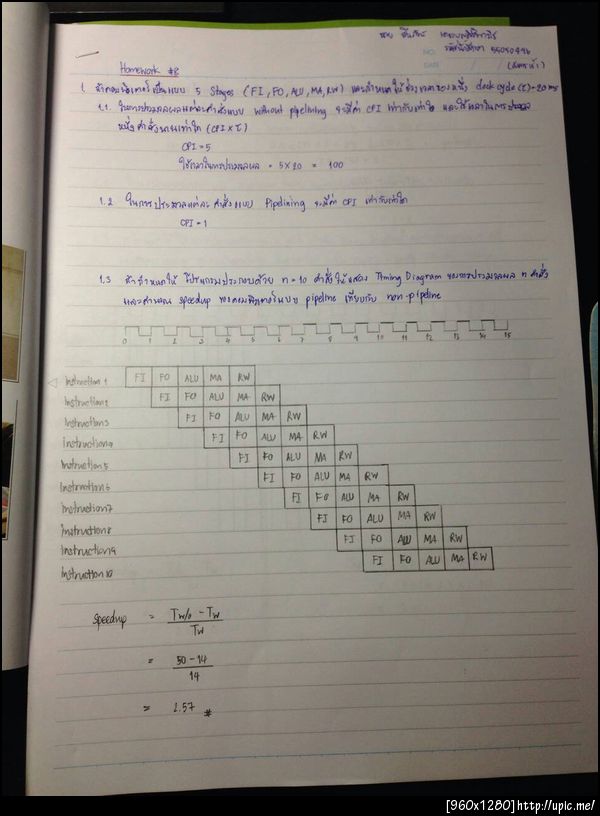 นาย
NO. รหัสนักศึกษา
DATE
Homework #8
1. ถ้าคอมพิวเตอร์เป็นแบบ 5 Stages (FI, FO, ALU, MA, RW) และกำหนดให้ช่วงเวลาของหนึ่ง clock cycle (τ) = 20 ms
1.1 ในการประมวลผลแต่ละคำสั่งแบบ without pipelining จะมีค่า CPI เท่ากับเท่าใด และใช้เวลาในการประมวล
หนึ่งคำสั่งนานเท่าใด (CPI x τ)
CPI = 5
ใช้เวลาในการประมวลผล = 5x20 = 100
1.2 ในการประมวลแต่ละคำสั่งแบบ Pipelining จะมีค่า CPI เท่ากับเท่าใด
CPI = 1
1.3 ถ้ากำหนดให้โปรแกรมประกอบด้วย n = 10 คำสั่ง ให้แสดง Timing Diagram ของการประมวลผล n คำสั่ง
และคำนวณ speedup ของคอมพิวเตอร์แบบ pipeline เทียบกับ non-pipeline
0 1 2 3 4 5 6 7 8 9 10 11 12 13 14 15
Instruction 1 FI FO ALU MA RW
Instruction 2 FI FO ALU MA RW
Instruction 3 FI FO ALU MA RW
Instruction 4 FI FO ALU MA RW
Instruction 5 FI FO ALU MA RW
Instruction 6 FI FO ALU MA RW
Instruction 7 FI FO ALU MA RW
Instruction 8 FI FO ALU MA RW
Instruction 9 FI FO ALU MA RW
Instruction 10 FI FO ALU MA RW
Speedup = Tw/o - Tw
Tw
= 50 - 14
14
= 2.57 #
[960x1280]http://upic.me/